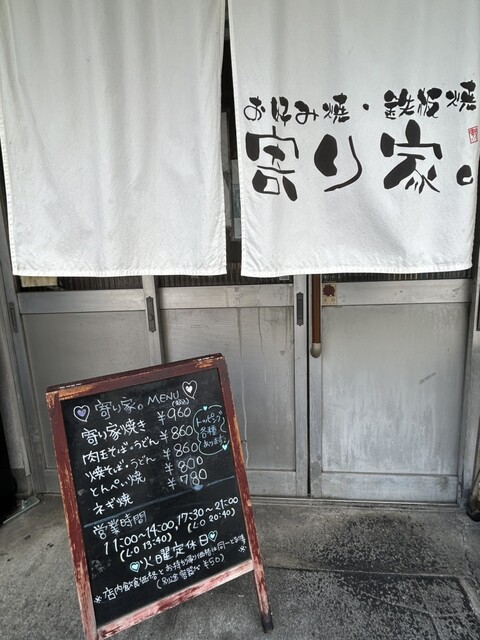 お好み焼・鉄板焼
寄り家。
寄り家。MENU (税込)
寄り家焼き ¥960
肉玉そば・うどん ¥860
焼そば・うどん ¥860
とんぺい焼 ¥800
ネギ焼 ¥780
トッピング
各種
あります
営業時間
11:00~14:00, 17:30~21:00
(LO 13:40) (LO 20:40)
火曜定休日
※店内飲食価格とお持ち帰り価格は同一です ※
(別途 容器代 ¥50)